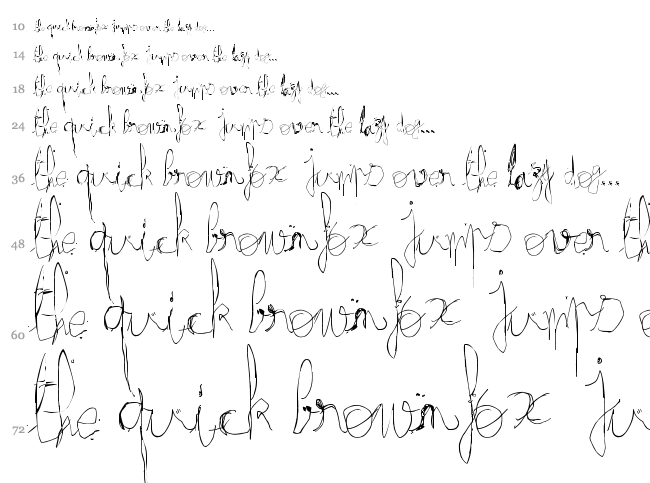 10 the quick brown fox jumps over the lazy dog...
14 the quick brown fox jumps over the lazy dog...
18 the quick brown fox jumps over the lazy dog...
24 the quick brown fox jumps over the lazy dog...
36 the quick brown fox jumps over the lazy dog...
48 the quick brown fox jumps over th
60 the quick brown fox jumps o
72 the quick brown fox ju